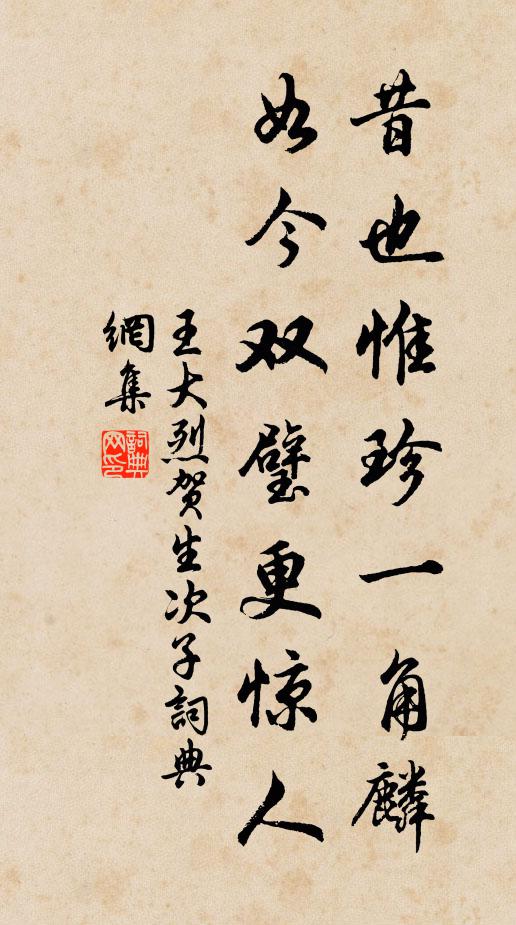 昔也惟珍一角麟
如今双璧更惊人
王大烈贺生次子詞典
網集
詞典
网印